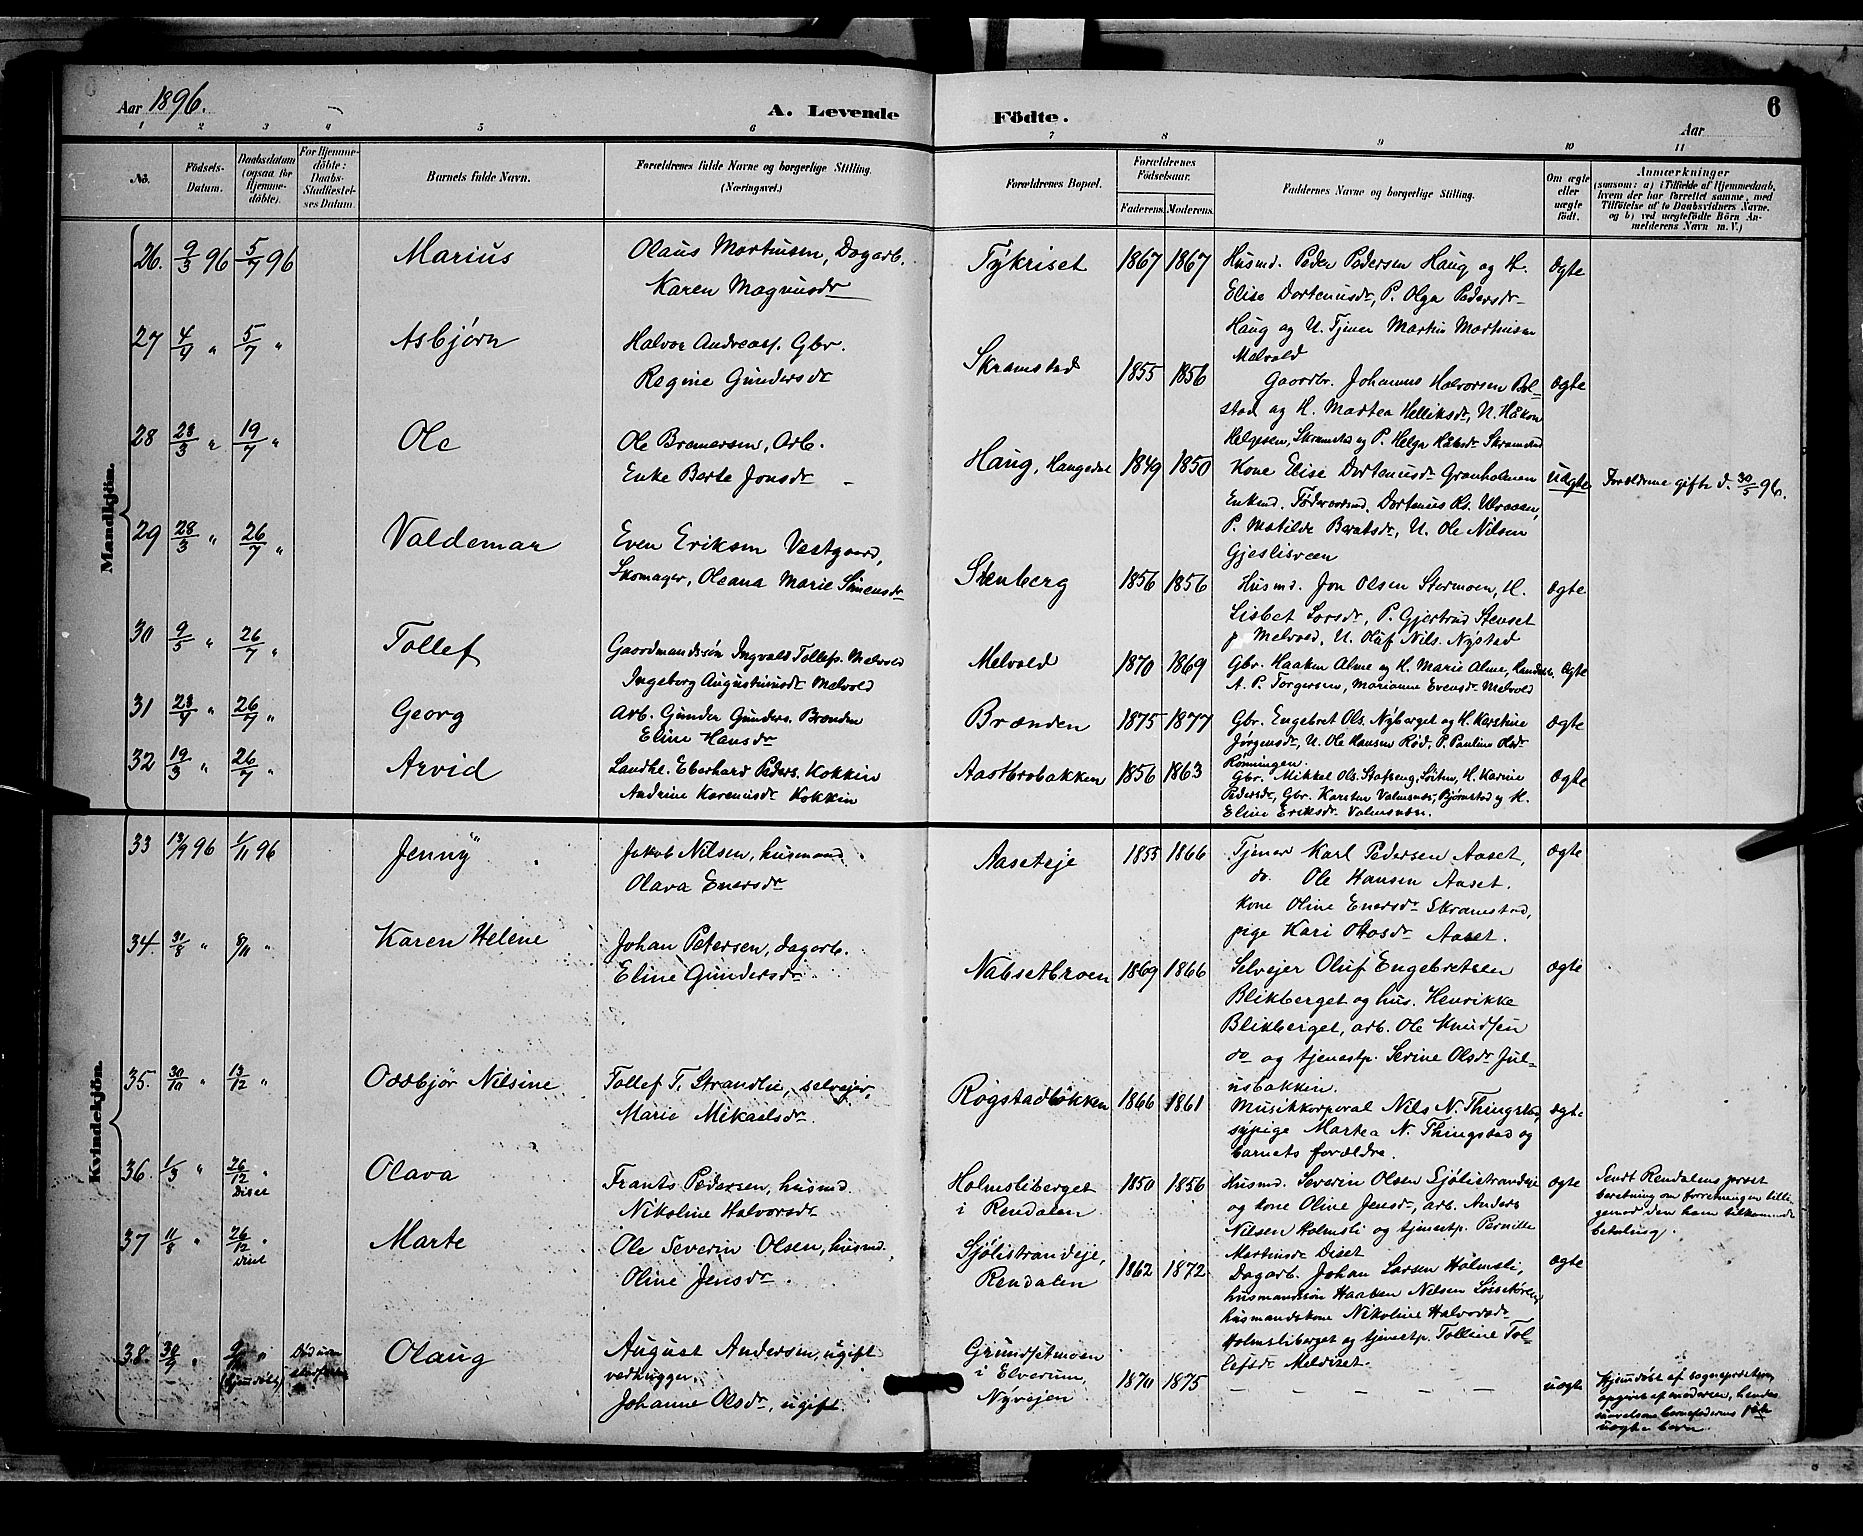 Aar 1896.
A. Levende Födte.
6
Aar
1 2 3 4 5 6 7 8 9 10 11
No.
Födsels-Datum.
Daabsdatum (ogsaa for Hjemmedöbte).
For Hjemmedöbte: Daabs-Stadfæstelses Datum.
Barnets fulde Navn.
Forældrenes fulde Navne og borgerlige Stilling. (Næringsvei.)
Forældrenes Bopæl.
Forældrenes Födselsaar.
Faderens. Moderens.
Faddernes Navne og borgerlige Stilling.
Om ægte eller uægte födt.
Anmærkninger (saasom: a) i Tilfælde af Hjemmedaab, hvem der har forrettet samme, med Tilföielse af to Daabsvidners Navne, og b) ved uægtefödte Börn Anmelderens Navn m. V.)
Mandkjön.
26. 9/3 96 5/7 96 Marius
Olaus Martinsen, Dagarb.
Karen Magnusdr
Tykriset 1867 1867
Husmd. Peder Pedersen Haug og H.
Elise Dortenusdr, P. Olga Pedersdr
Haug og U. Tjener Martin Martinsen
Melvold
Ægte
27 4/4 " 5/7 " Asbjørn
Halvor Andreass. Gbr.
Regine Gundersdr
Skramstad 1855 1856
Gaardbr. Johannes Halvorsen Bol-
stad og H. Martea Helliksdr, U. Håkon
Helgesen, Skramstad og P. Helga Skramstad
ægte
28 28/3 " 19/7 " Ole
Ole Bremersen, Arb.
Enke Berte Jonsdr
Haug, Haugedal 1849 1850
Kone Elise Dortenusdr Granholmen
Enkemd. Föderaadsmd. Dortenus
P. Matilde Berntsdr, U. Ole Nilsen
Gjeslisveen
uægte
Forældrene gifte d. 30/5 96.
29 28/3 " 26/7 " Valdemar
Even Eriksen Vestgaard,
Skomager, Oleana Marie Simensdr
Stenberg 1856 1856
Husmd. Jon Olsen Stormoen, H.
Lisbet Larsdr, P. Gjertrud Stenset
p Melvold, U. Oluf Nils. Nystad
ægte
30 9/5 " 26/7 " Tollef
Gaardmandssön Ingvald Tollefs. Melvold
Ingeborg Augustinusdr Melvold
Melvold 1870 1869
Gbr. Haaken Alme og H. Marie Alme,
A. P. Torgersen, Marianne Evensdr Melvold
ægte
31 23/4 " 26/7 " Georg
Arb. Gunder Gunders. Brænden
Eline Hansdr
Brænden 1875 1877
Gbr. Engebret Ols. Nyberget og H. Karstine
Jørgensdr, U. Ole Hansen Rød, P. Pauline Olsdr
Rönningen.
ægte
32 19/3 " 26/7 " Arvid
Landhl. Eberhard Peders. Kokkin
Andrine Karenusdr Kokkin
Aastbrobakken 1856 1863
Gbr. Mikkel Ols. Stafseng, Söiten, H. Karine
Pedersdr, Gbr. Karsten Valmsnæs, Björnstad og H.
Eline Eriksdr Valmsnæs.
ægte
Kvindekjön.
33 13/9 96 1/11 96 Jenny
Jakob Nilsen, husmand
Olava Enersdr
Aaseteje 1855 1866
Tjener Karl Pedersen Aaset,
do. Ole Hansen Aaset.
kone Oline Enersdr Skramstad,
pige Kari Olsdr Aaset.
ægte
34. 31/8 " 8/11 " Karen Helene
Johan Petersen, dagarb.
Eline Gundersdr
Nabsetbroen 1869 1866
Selvejer Oluf Engebretsen
Blikberget og hus. Henrikke
Blikberget, arb. Ole Knudsen
do og tjenestp. Serine Olsdr Jul-
usbakkin.
ægte
35. 30/10 " 13/12 " Oddbjør Nilsine
Tollef T. Strandlie, selvejer,
Marie Mikaelsdr.
Rogstadløkken 1866 1861
Musikkorporal Nils N. Thingstad,
sypige Martea N. Thingstad og
barnets forældre.
ægte
36 1/3 " 26/12 " Diset Olava
Frants Pedersen, husmd.
Nikoline Halvorsdr
Holmsliberget
i Rendalen 1850 1856
Husmd. Severin Olsen Sjølistrandeje
og kone Oline Jensdr, arb. Anders
Nilsen Holmsli og tjenestp. Pernille
Martinsdr Diset
ægte
Sendt Rendalens prest
beretning om forretningen tilli-
gemed den ham tilkommende
betaling.
37 11/8 " 26/12 " Diset Marte
Ole Severin Olsen, husmd.,
Oline Jensdr.
Sjølistrandeje,
Rendalen 1862 1872
Dagarb. Johan Larsen Holmsli,
husmandssön Haaken Nilsen
husmandskone Nikoline Halvorsdr
Holmsliberget og tjenestp. Tolline Tol-
lefsdr Meldiset.
ægte
38. 30/9 " (hjemdöbt) Olaug
August Andersen, ugift
vedhugger,
Johanne Olsdr, ugift.
Grundsetmoen
i Elverum,
Nyvejen 1870 1875
— — — — — —
uægte
Hjemdöbt af sogneprester,
opgivet af moderen, hendes
saavelsom barnefaderens
uægte barn.